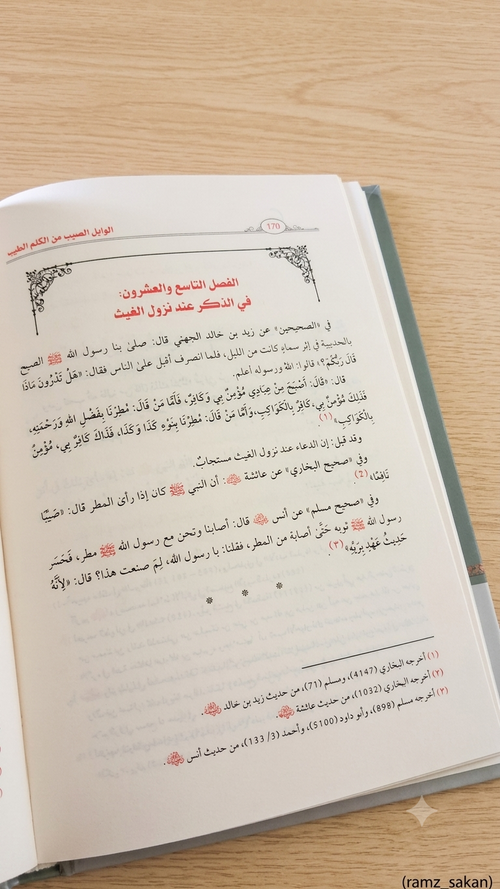 170
الوابل الصيب من الكلم الطيب
الفصل التاسع والعشرون:
في الذكر عند نزول الغيث
في «الصحيحين» عن زيد بن خالد الجهني قال: صلىٰ بنا رسول الله ﷺ الصبح
بالحديبية في إثر سماءٍ كانت من الليل، فلما انصرف أقبل علىٰ الناس فقال: «هَلْ تَدْرُونَ مَاذَا
قَالَ رَبُّكُمْ؟» قالوا: اللهُ ورسوله أعلم.
قال: «قَالَ: أَصْبَحَ مِنْ عِبَادِي مُؤْمِنٌ بِي وَكَافِرٌ، فَأَمَّا مَنْ قَالَ: مُطِرْنَا بِفَضْلِ اللهِ وَرَحْمَتِهِ،
فَذَلِكَ مُؤْمِنٌ بِي، كَافِرٌ بِالْكَوَاكِبِ، وَأَمَّا مَنْ قَالَ: مُطِرْنَا بِنَوْءِ كَذَا وَكَذَا، فَذَاكَ كَافِرٌ بِي، مُؤْمِنٌ
بِالْكَوَاكِبِ» (١).
وقد قيل: إن الدعاء عند نزول الغيث مستجابٌ.
وفي «صحيح البخاري» عن عائشة: أن النبي ﷺ كان إذا رأىٰ المطر قال: «صَيِّبًا
نَافِعًا» (2).
وفي «صحيح مسلم» عن أنس قال: أصابنا ونحن مع رسول الله ﷺ مطر، فَحَسَرَ
رسول الله ﷺ ثوبه حَتَّىٰ أصابه من المطر، فقلنا: يا رسول الله، لِمَ صنعت هذا؟ قال: «لِأَنَّهُ
حَدِيثُ عَهْدٍ بِرَبِّهِ» (٣).
* * *
(١) أخرجه البخاري (4147)، ومسلم (71)، من حديث زيد بن خالد.
(٢) أخرجه البخاري (1032)، من حديث عائشة.
(٣) أخرجه مسلم (898)، وأبو داود (5100)، وأحمد (3/ 133)، من حديث أنس.
(ramz_sakan)